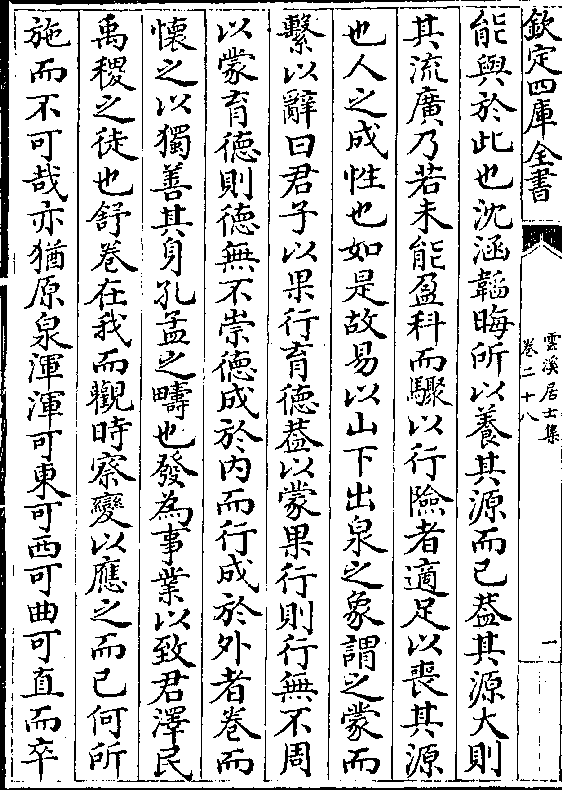 欽定四庫全書
雲溪居士集
卷二十八
一
能與於此也沈涵韜晦所以養其源而已葢其源大則
其流廣乃若未能盈科而驟以行險者適足以喪其源
也人之成性也如是故易以山下出泉之象謂之蒙而
繫以辭曰君子以果行育德葢以蒙果行則行無不周
以蒙育德則德無不崇德成於内而行成於外者卷而
懐之以獨善其身孔孟之疇也發為事業以致君澤民
禹稷之徒也舒卷在我而觀時察變以應之而已何所
施而不可哉亦猶原泉渾渾可東可西可曲可直而卒